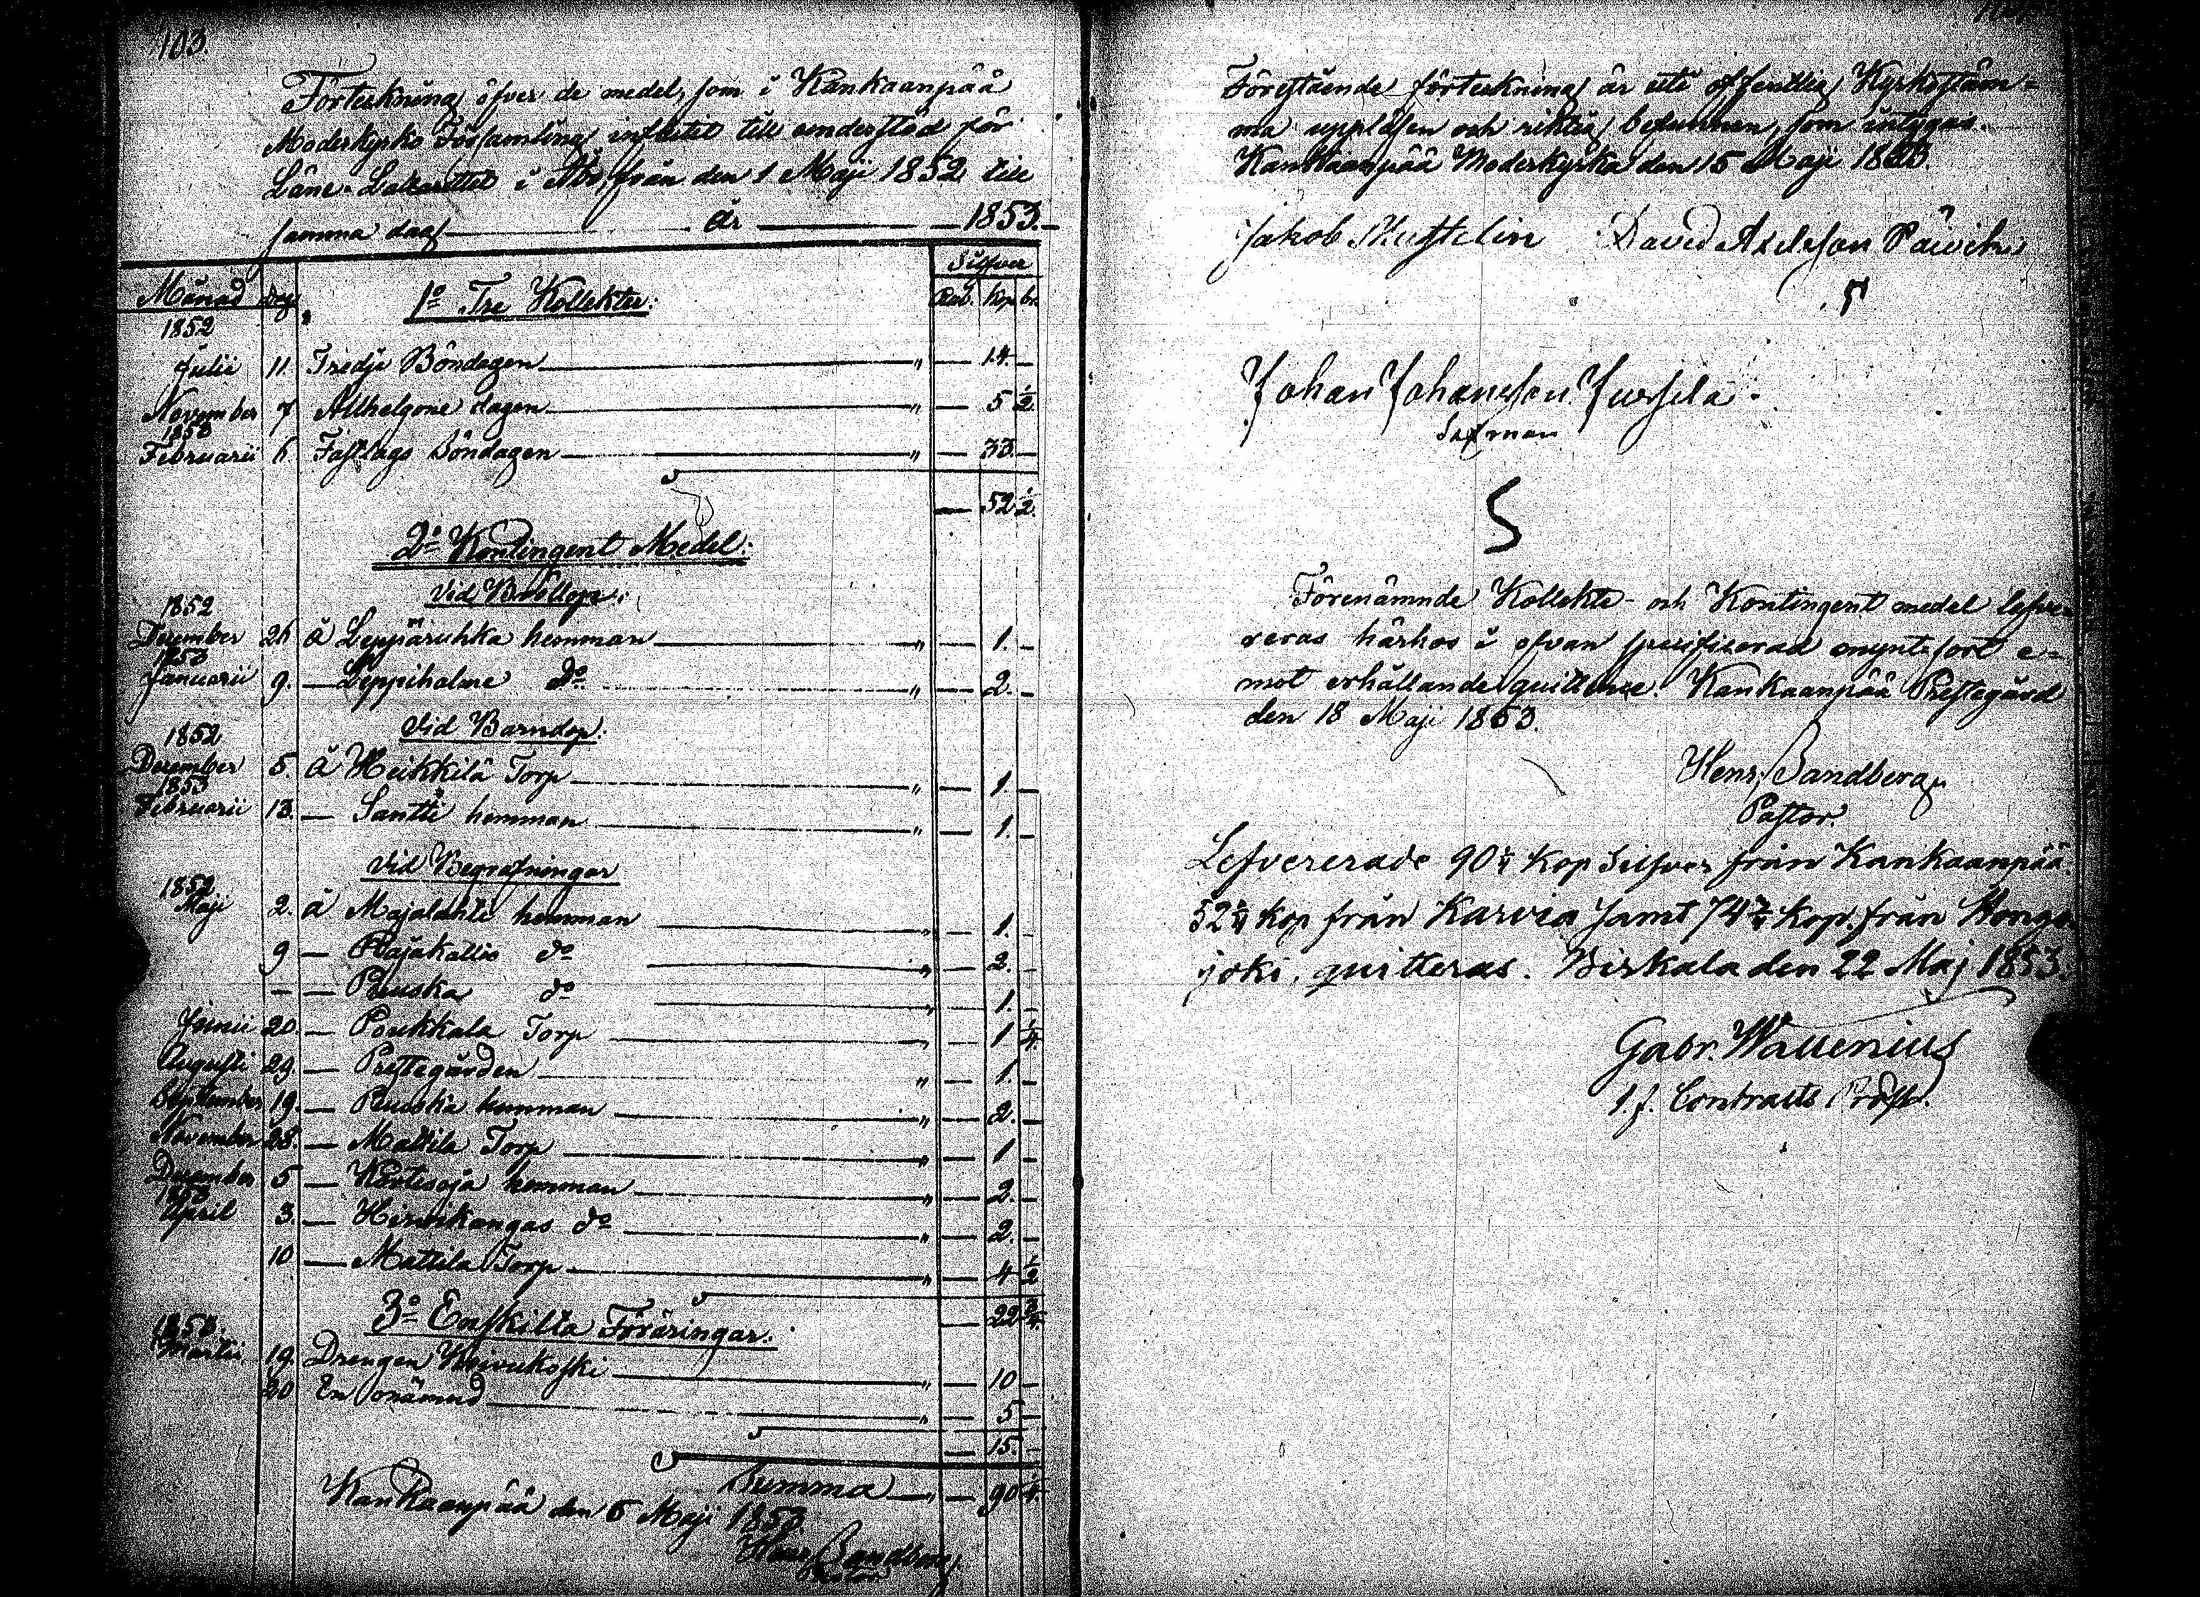 103.
Förteckning öfver de medel, som i Kankaanpää
Moderkyrko Församling influtit till understöd för
Läns-Lazarettet i Åbo från den 1 Maji 1852 till
samma dag år 1853.
Silfver
Månad Dag 1º Tre Kollekter: Rub. Kop. br.
1852
Julii 11. Tredje Böndagen " — 14. —
November 7 Allhelgone dagen " — 5 1/2
1853
Februarii 6. Fastlags Söndagen " — 33. —
— 52 1/2.
2º Kontingent Medel:
Vid Bröllop:
1852
December 26 å Leppäruhka hemman " — 1. —
1853
Januarii 9. — Leppiholme dº " — 2. —
Vid Barndop.
1852
December 5. å Heikkilä Torp " — 1. —
1853
Februarii 13. — Santti hemman " — 1. —
Vid Begrafningar
1852
Maji 2. å Majalahti hemman " — 1. —
9 — Rajakallio dº " — 2. —
— — Pouska dº " — 1. —
Junii 20. — Poukkala Torp " — 1 1/4
Augusti 29. — Prestegården " — 1. —
September 19. — Pouska hemman " — 2. —
November 28. — Mattila Torp " — 1 —
December 5 — Kertesoja hemman " — 2. —
1853
April 3. — Hirvikangas dº " — 2. —
10 — Mattila Torp " — 4 1/2
— 22 3/4.
3º Enskilta Föräringar.
1853
Martii 19. Drengen Koivukoski " — 10 —
20 En onämnd " — 5 —
— 15. —
Summa " — 90 1/4.
Kankaanpää den 6 Maji 1853
Henr. Sandberg
Pastor
Förestående förteckning är uti offentlig Kyrkostäm-
ma uppläsen och riktig befunnen, som intygas.
Kankaanpää Moderkyrka den 15 Maji 1853.
Jakob David Axelsson
Johan Johansson Jussila.
Sexman
S
Förenämnde Kollekte- och Kontingent medel lefve-
reras härhos i ofvan specificerad myntsort e-
mot erhållande quittence. Kankaanpää Prestegård
den 18 Maji 1853.
Henr. Sandberg
Pastor.
Lefvererade 90 1/4 Kop Silfver från Kankaanpää.
52 1/4 kop från Karvia samt 74 2/4 kop. från Hongo
joki, quitteras. Birkala den 22 Maj 1853.
Gabr. Wallenius
t. f. Contracts Prost.